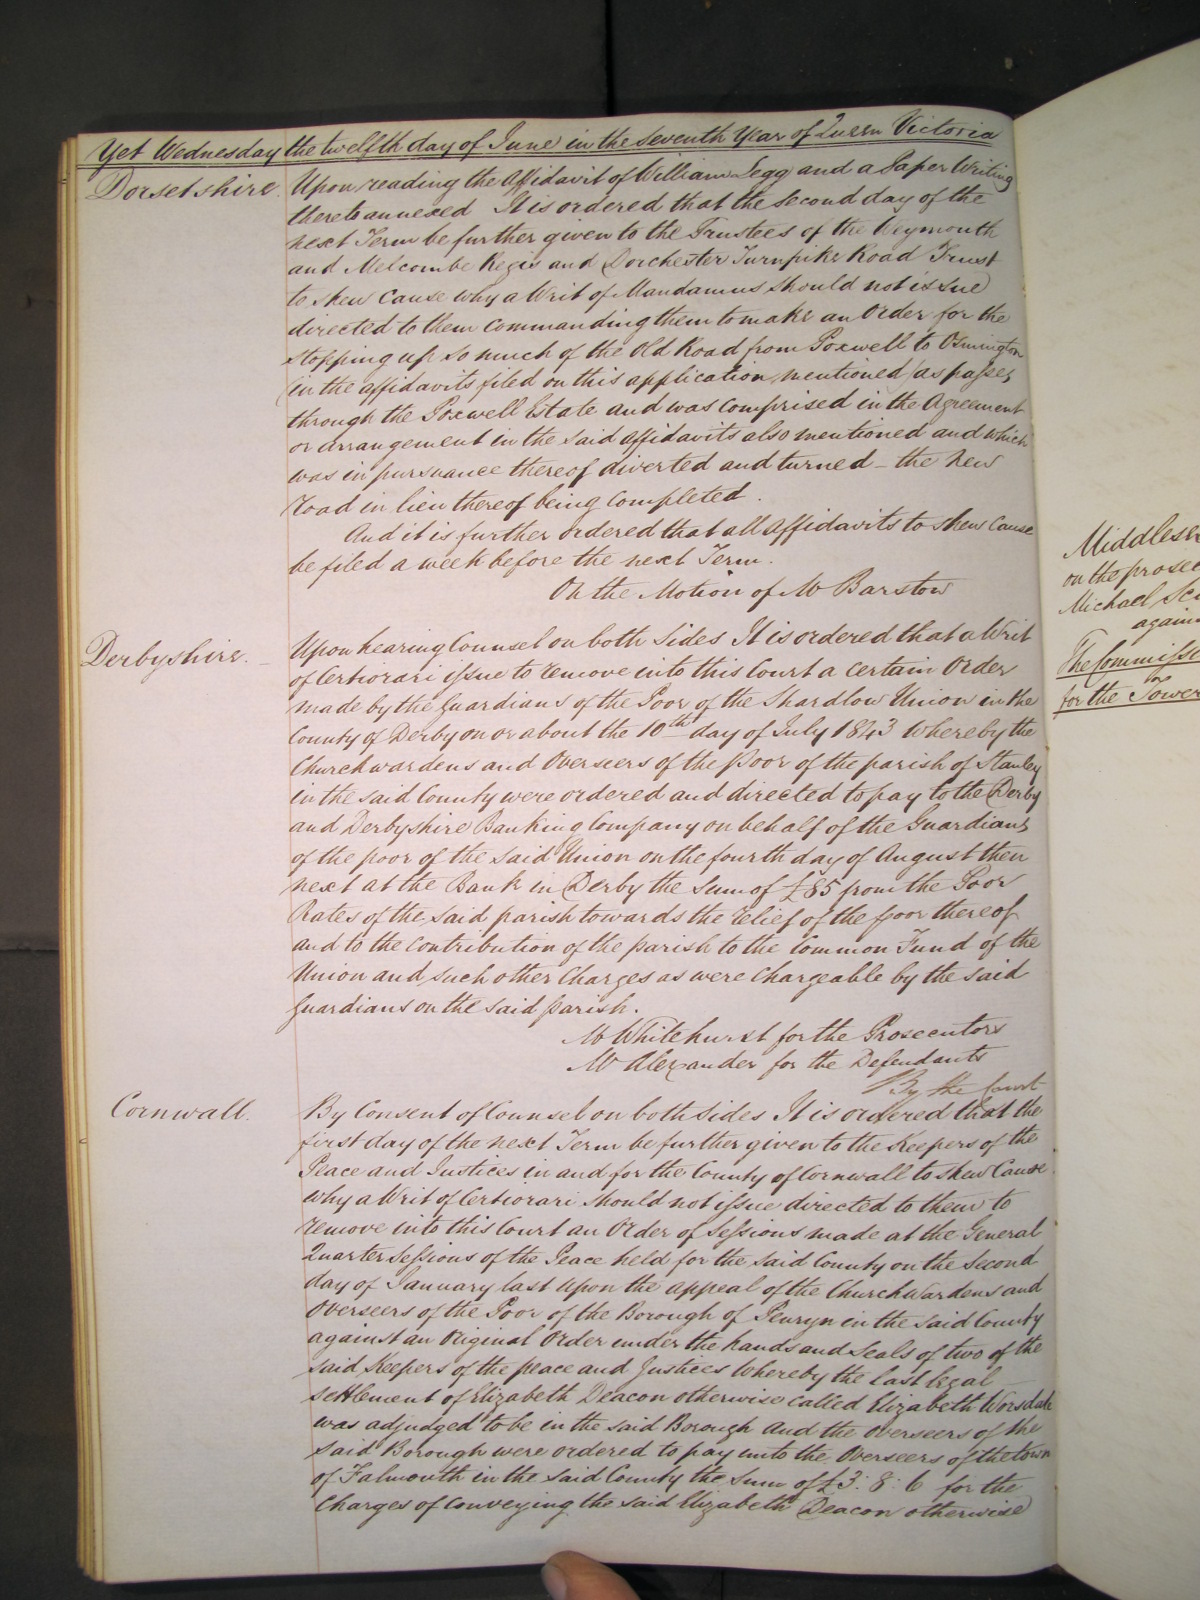 Yet Wednesday the twelfth day of June in the seventh Year of Queen Victoria
Dorsetshire. Upon reading the Affidavit of William Legg and a Paper Writing
thereto annexed It is ordered that the second day of the
next Term be further given to the Trustees of the Weymouth
and Melcombe Regis and Dorchester Turnpike Road Trust
to shew Cause why a Writ of Mandamus should not issue
directed to them commanding them to make an Order for the
stopping up so much of the Old Road from Poxwell to Osmington
(in the affidavits filed on this application mentioned) as passes
through the Poxwell Estate and was comprised in the Agreement
or arrangement in the said affidavits also mentioned and which
was in pursuance thereof diverted and turned – the New
road in lieu thereof being completed.
And it is further ordered that all Affidavits to shew Cause
be filed a week before the next Term.
On the Motion of Mr Barstow
Derbyshire. Upon hearing Counsel on both sides It is ordered that a Writ
of Certiorari issue to remove into this Court a certain Order
made by the Guardians of the Poor of the Shardlow Union in the
County of Derby on or about the 10th day of July 1843 whereby the
Churchwardens and Overseers of the Poor of the parish of Stanley
in the said County were ordered and directed to pay to the Derby
and Derbyshire Banking Company on behalf of the Guardians
of the poor of the said Union on the fourth day of August then
next at the Bank in Derby the sum of £85 from the Poor
Rates of the said parish towards the relief of the poor thereof
and to the contribution of the parish to the Common Fund of the
Union and such other Charges as were chargeable by the said
Guardians on the said parish.
Mr Whitehurst for the Prosecutors
Mr Alexander for the Defendants
By the Court
Cornwall. By Consent of Counsel on both sides It is ordered that the
first day of the next Term be further given to the Keepers of the
Peace and Justices in and for the County of Cornwall to shew Cause
why a Writ of Certiorari should not issue directed to them to
remove into this Court an Order of Sessions made at the General
Quarter Sessions of the Peace held for the said County on the second
day of January last upon the appeal of the Churchwardens and
Overseers of the Poor of the Borough of Penryn in the said County
against an Original Order under the hands and seals of two of the
said Keepers of the peace and Justices whereby the last legal
settlement of Elizabeth Deacon otherwise called Elizabeth Worsdale
was adjudged to be in the said Borough and the Overseers of the
said Borough were ordered to pay unto the Overseers of the town
of Falmouth in the said County the sum of £3: 8: 6 for the
Charges of conveying the said Elizabeth Deacon otherwise
on the
Michael
The
for the Tower